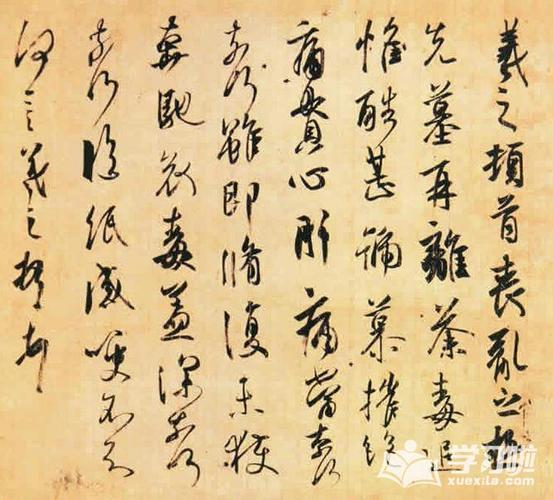 羲之頓首喪亂之極
先墓再離荼毒追
惟酷甚號慕摧絕
痛貫心肝痛當奈何
奈何雖即脩復未獲
奔馳哀毒益深奈何
奈何臨紙感哽不知
何言羲之頓首
学习啦
xuexila.com